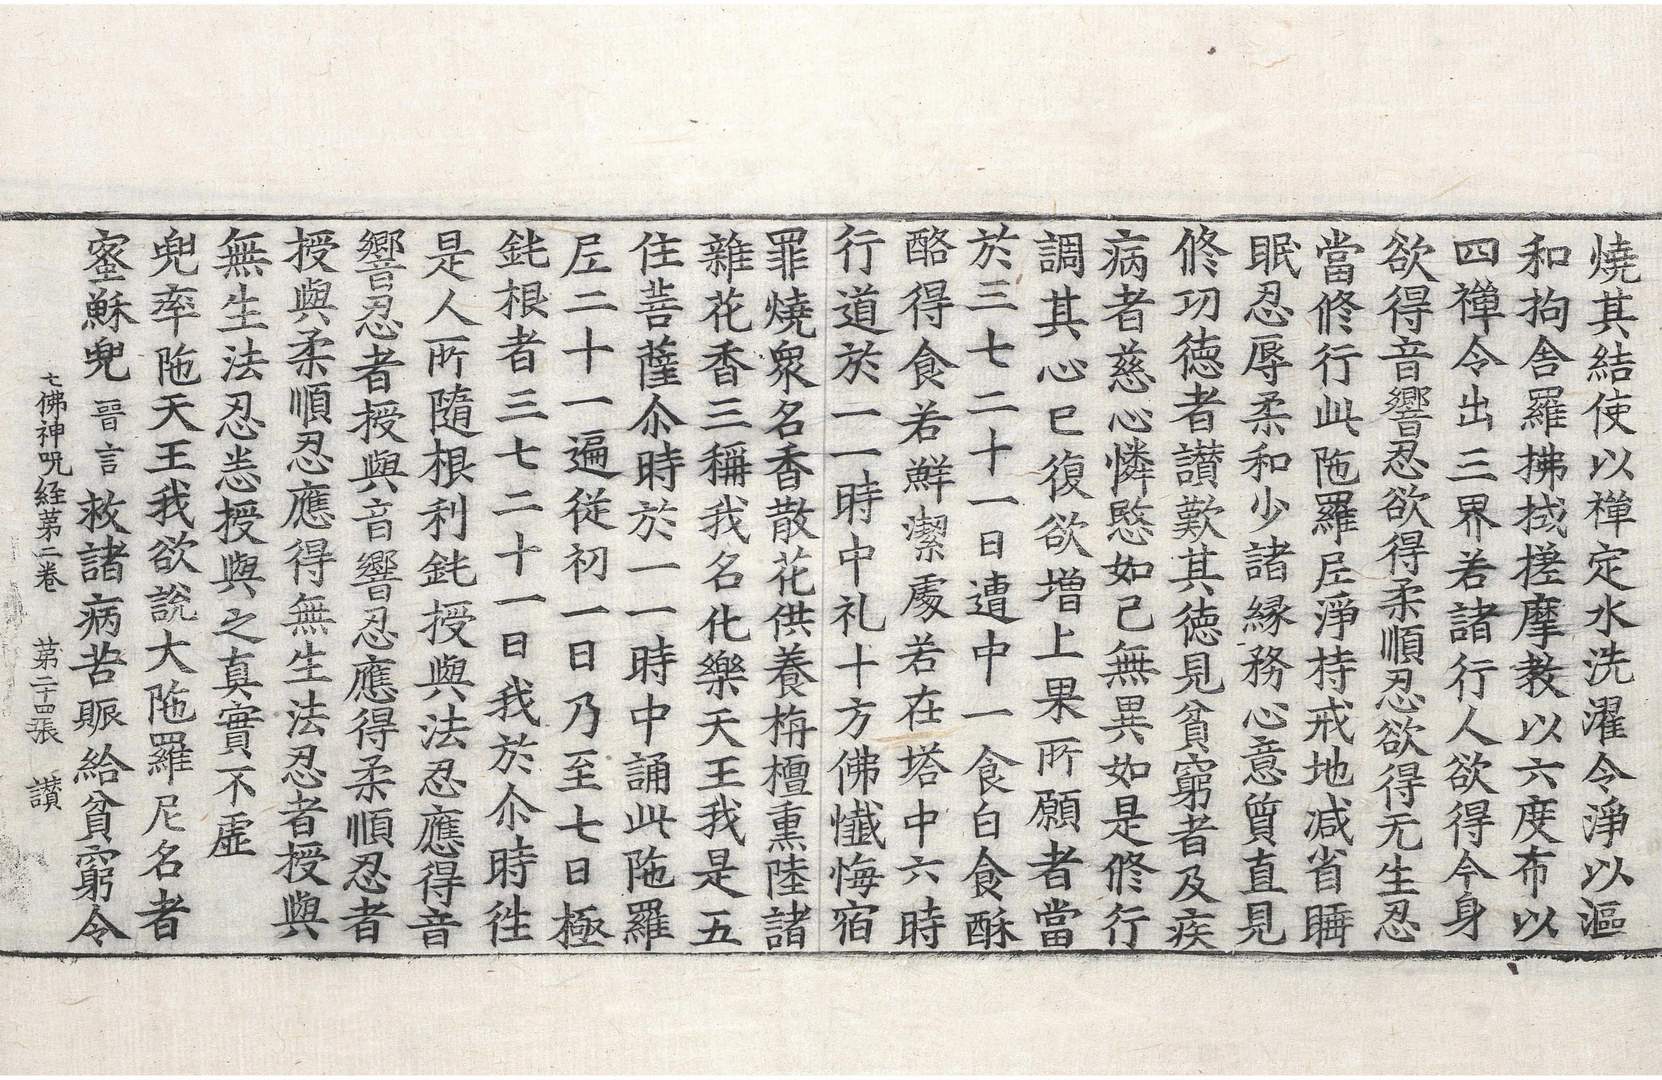 燒其結使以禪定水洗濯令淨以漚
和拘舍羅拂拭搓摩教以六度布以
四禪令出三界若諸行人欲得今身
欲得音響忍欲得柔順忍欲得无生忍
當修行此陁羅𡰱淨持戒地減省睡
眠忍辱柔和少諸緣務心意質直見
修功德者讃歎其德見貧窮者及疾
病者慈心憐愍如己無異如是修行
調其心已復欲增上果所願者當
於三七二十一日遭中一食白食酥
酪得食若鮮潔處若在塔中六時
行道於一一時中礼十方佛懺悔宿
罪燒衆名香散花供養栴檀熏陸諸
雜花香三稱我名化樂天王我是五
住菩薩尒時於一一時中誦此陁羅
𡰱二十一遍從初一日乃至七日極
鈍根者三七二十一日我於尒時往
是人所隨根利鈍授與法忍應得音
響忍者授與音響忍應得柔順忍者
授與柔順忍應得無生法忍者授與
無生法忍悉授與之真實不虛
兜率陁天王我欲說大陁羅尼名者
蜜穌兜 晉言 救諸病苦賑給貧窮令
七佛神呪経第二卷 第二十四張 讃